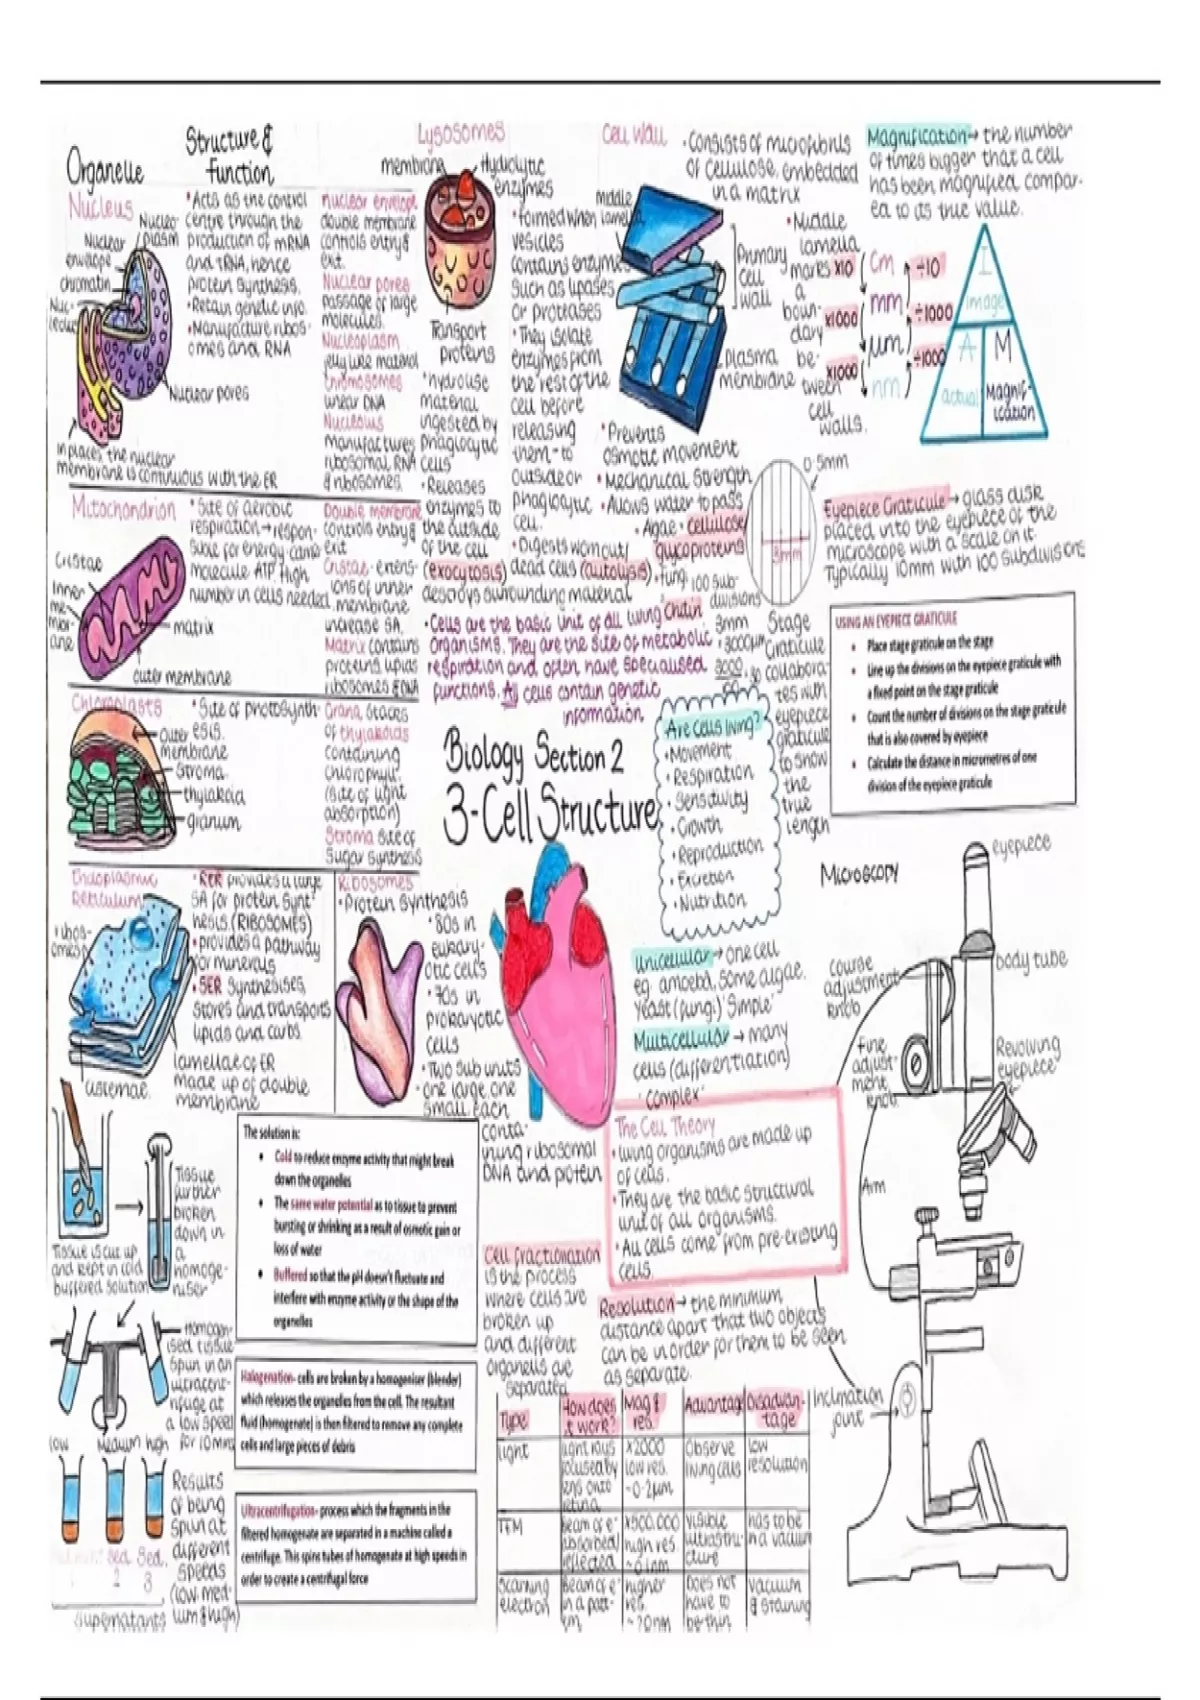 Organelle
Structure &
Function
Nucleus
Nucleo-
plasm
Nuclear
envelope
chromatin
Nuclear pores
In places the nuclear
membrane is continuous with the ER
• Acts as the control
centre through the
production of mRNA
and tRNA, hence
protein synthesis.
• Retain genetic info.
• Manufacture ribos-
omes and RNA
Nuclear envelope
double membrane
controls entry &
exit.
Nuclear pores
passage of large
molecules.
Nucleoplasm
jelly like material
Chromosomes
linear DNA
Nucleolus
manufactures
ribosomal RNA
& ribosomes.
Mitochondrion
Cristae
Inner
me-
mbr-
ane
matrix
outer membrane
• Site of aerobic
respiration → respon-
sible for energy-carrier
molecule ATP. High
number in cells needed
Double membrane
controls entry &
exit
Cristae- extens-
ions of inner
membrane
increase SA.
Matrix contains
proteins, lipids
ribosomes & DNA
Chloroplasts
outer
membrane
stroma
thylakoid
granum
• Site of photosynth-
esis.
Grana, stacks
of thylakoids
containing
chlorophyll.
(site of light
absorption)
Stroma site of
sugar synthesis
Endoplasmic
Reticulum
ribos-
omes
cisternae.
lamellae of ER
made up of double
membrane
• RER provides a large
SA for protein synt-
hesis. (RIBOSOMES)
• provides a pathway
for minerals
• SER synthesises,
stores and transports
lipids and carbs.
Ribosomes
• Protein synthesis
• 80s in
eukary-
otic cells
• 70s in
prokaryotic
cells
• Two sub units
one large, one
small. each
conta-
ining ribosomal
DNA and protein
Lysosomes
membrane
Hydrolytic
enzymes
Transport
proteins
• hydrolise
material
ingested by
phagocytic
cells
• Releases
enzymes to
the outside
of the cell
(exocytosis)
• Formed when
vesicles
contains enzymes
such as lipases
or proteases
• They isolate
enzymes from
the rest of the
cell before
releasing
them - to
outside or
phagocytic
cell.
• Digests worn out/
dead cells (autolysis)
destroys surrounding material
• Cells are the basic unit of all living
organisms. They are the site of metabolic
respiration and often have specialised
functions. All cells contain genetic
information
Cell Wall
• Consists of microfibrils
of cellulose, embedded
in a matrix
middle
lamella
Primary
cell
wall
plasma
membrane
• Middle
lamella
marks
a
boun-
dary
be-
tween
cell
walls.
• Prevents
osmotic movement
• Mechanical strength
• Allows water to pass
• Algae • cellulose
glycoproteins
• Fungi
Chitin
Magnification → the number
of times bigger that a cell
has been magnified compar-
ed to its true value.
x10
cm
÷10
x1000
mm
÷1000
µm
x1000
÷1000
nm
I
image
A
actual
M
Magnif-
ication
0.5mm
3mm
100 sub-
divisions
3mm
= 3000µm
Stage
Graticule
collabora-
tes with
eyepiece
graticule
to show
the
true
length
Eyepiece Graticule → glass disk
placed into the eyepiece of the
microscope with a scale on it.
Typically 10mm with 100 subdivisions
USING AN EYEPIECE GRATICULE
• Place stage graticule on the stage
• Line up the divisions on the eyepiece graticule with
a fixed point on the stage graticule
• Count the number of divisions on the stage graticule
that is also covered by eyepiece
• Calculate the distance in micrometres of one
division of the eyepiece graticule
Biology Section 2
3-Cell Structure
Are Cells living?
• Movement
• Respiration
• Sensitivity
• Growth
• Reproduction
• Excretion
• Nutrition
Unicellular → one cell
eg. amoeba, some algae.
Yeast (fungi) 'Simple'
Multicellular → many
cells (differentiation)
'complex'
The Cell Theory
• Living organisms are made up
of cells.
• They are the basic structural
unit of all organisms.
• All cells come from pre-existing
cells.
Resolution → the minimum
distance apart that two objects
can be in order for them to be seen
as separate.
Microscopy
eyepiece
body tube
course
adjustment
knob
Fine
adjust-
ment
knob.
Revolving
eyepiece
Arm
Inclination
joint
Tissue is cut up
and kept in cold
buffered solution
Tissue
further
broken
down in
a
homoge-
niser
Homogen-
ised tissue
spun in an
ultracent-
rifuge at
a low speed
for 10 mins
low
Medium
high
Sed.
2
Sed.
3
supernatants
Results
of being
spun at
different
speeds
(low, med-
ium & high)
The solution is:
• Cold to reduce enzyme activity that might break
down the organelles
• The same water potential as to tissue to prevent
bursting or shrinking as a result of osmotic gain or
loss of water
• Buffered so that the pH doesn't fluctuate and
interfere with enzyme activity or the shape of the
organelles
Halogenation- cells are broken by a homogeniser (blender)
which releases the organelles from the cell. The resultant
fluid (homogenate) is then filtered to remove any complete
cells and large pieces of debris
Ultracentrifugation- process which the fragments in the
filtered homogenate are separated in a machine called a
centrifuge. This spins tubes of homogenate at high speeds in
order to create a centrifugal force
Cell fractionation
is the process
where cells are
broken up
and different
organells are
separated
Type
How does
it work?
Mag &
res.
Advantage
Disadvan-
tage
Light
Light rays
focused by
lens onto
retina
x2000
low res.
~0.2µm
Observe
living cells
low
resolution
TEM
Beam of e⁻
absorbed/
reflected
x500,000
high res.
visible
ultrastru-
cture
has to be
in a vacuum
Scanning
electron
Beam of e⁻
in a patt-
ern
higher
res.
~20nm
Does not
have to
be thin
vacuum
& staining